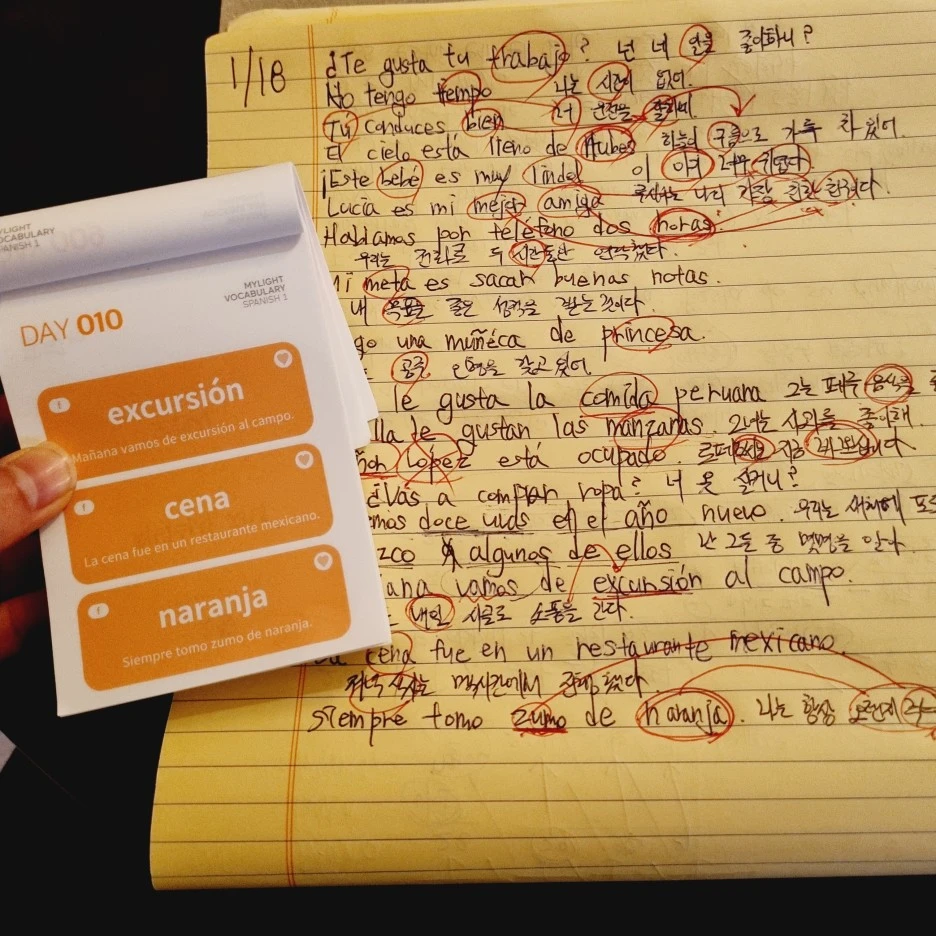 MYLIGHT
VOCABULARY
SPANISH 1
MYLIGHT
VOCABULARY
SPANISH 1
DAY 010
excursión
Mañana vamos de excursión al campo.
cena
La cena fue en un restaurante mexicano.
naranja
Siempre tomo zumo de naranja.
1/18
¿Te gusta tu trabajo? 넌 네 일을 좋아하니?
No tengo tiempo 나는 시간이 없어.
Tú conduces bien 너 운전을 잘하네.
El cielo está lleno de nubes 하늘이 구름으로 가득 차 있다.
¡Este bebé es muy lindo! 이 아기 너무 귀엽다
Lucía es mi mejor amiga 루시아는 나의 가장 친한 친구다.
Hablamos por teléfono dos horas.
우리는 전화로 두 시간동안
Mi meta es sacar buenas notas.
내 목표는 좋은 성적을 받는 것이다.
go una muñéca de princesa.
공주 인형을 갖고 있어.
le gusta la comida peruana 그는 페루 음식을
lla le gustan las manzanas. 그녀는 사과를 좋아해.
López está ocupado. 지금
¿Vas a comprar ropa? 너 옷 살거니?
mos doce uvas en el año nuevo. 우리는 새해에 포
zco a algunos de ellos 난 그들 중 몇명을 안다.
ana vamos de excursión al campo.
내일 시골로 소풍을 간다.
cena fue en un restaurante mexicano.
저녁 식사는 멕시칸에서
Siempre tomo zumo de naranja. 나는 항상 오렌지